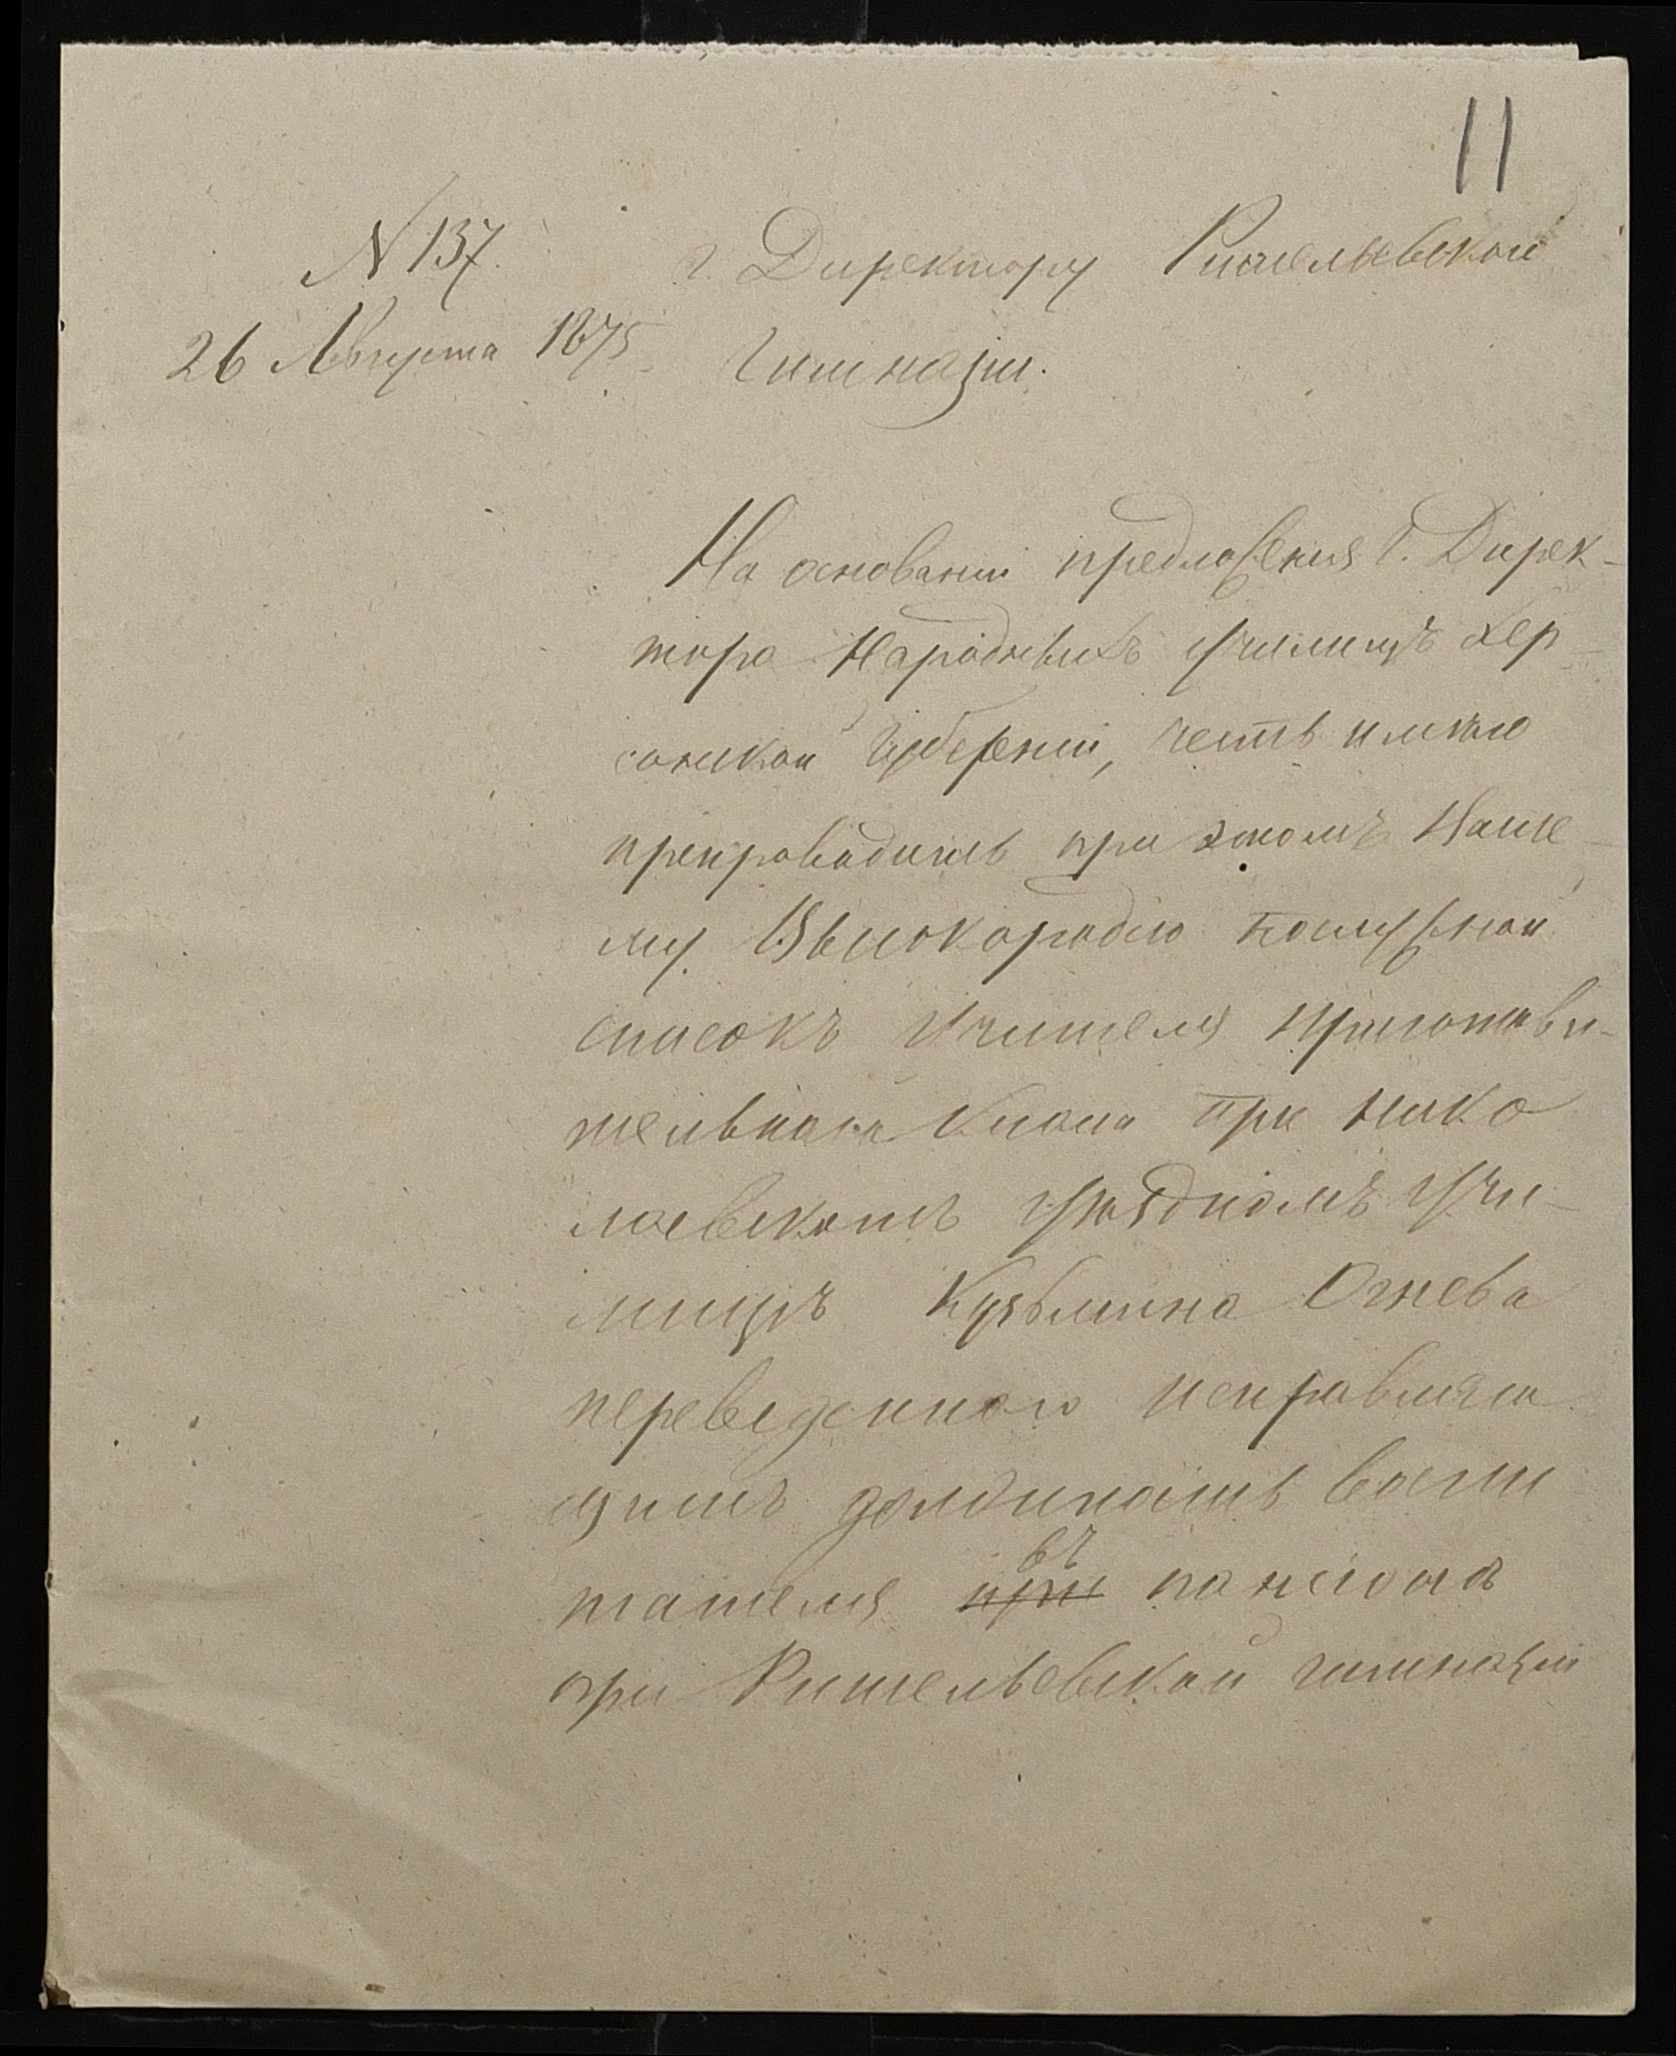 11
N 137.
26 Августа 1875
г. Директору Ришельевской
Гимназіи.
На основаніи предложенія Г. Дирек-
тора Народныхъ училищъ Хер-
сонской Губерніи, честь имѣю
препроводить при этомъ Ваше-
му Высокородію послужной
списокъ Учителя приготови-
тельнаго класса при Нико
лаевскомъ уѣздномъ учи-
лищѣ Кузьмина Огнева
переведеннаго исправляю
щимъ должность воспи
тателя при въ пансіонѣ
при Ришельевской гимназіи